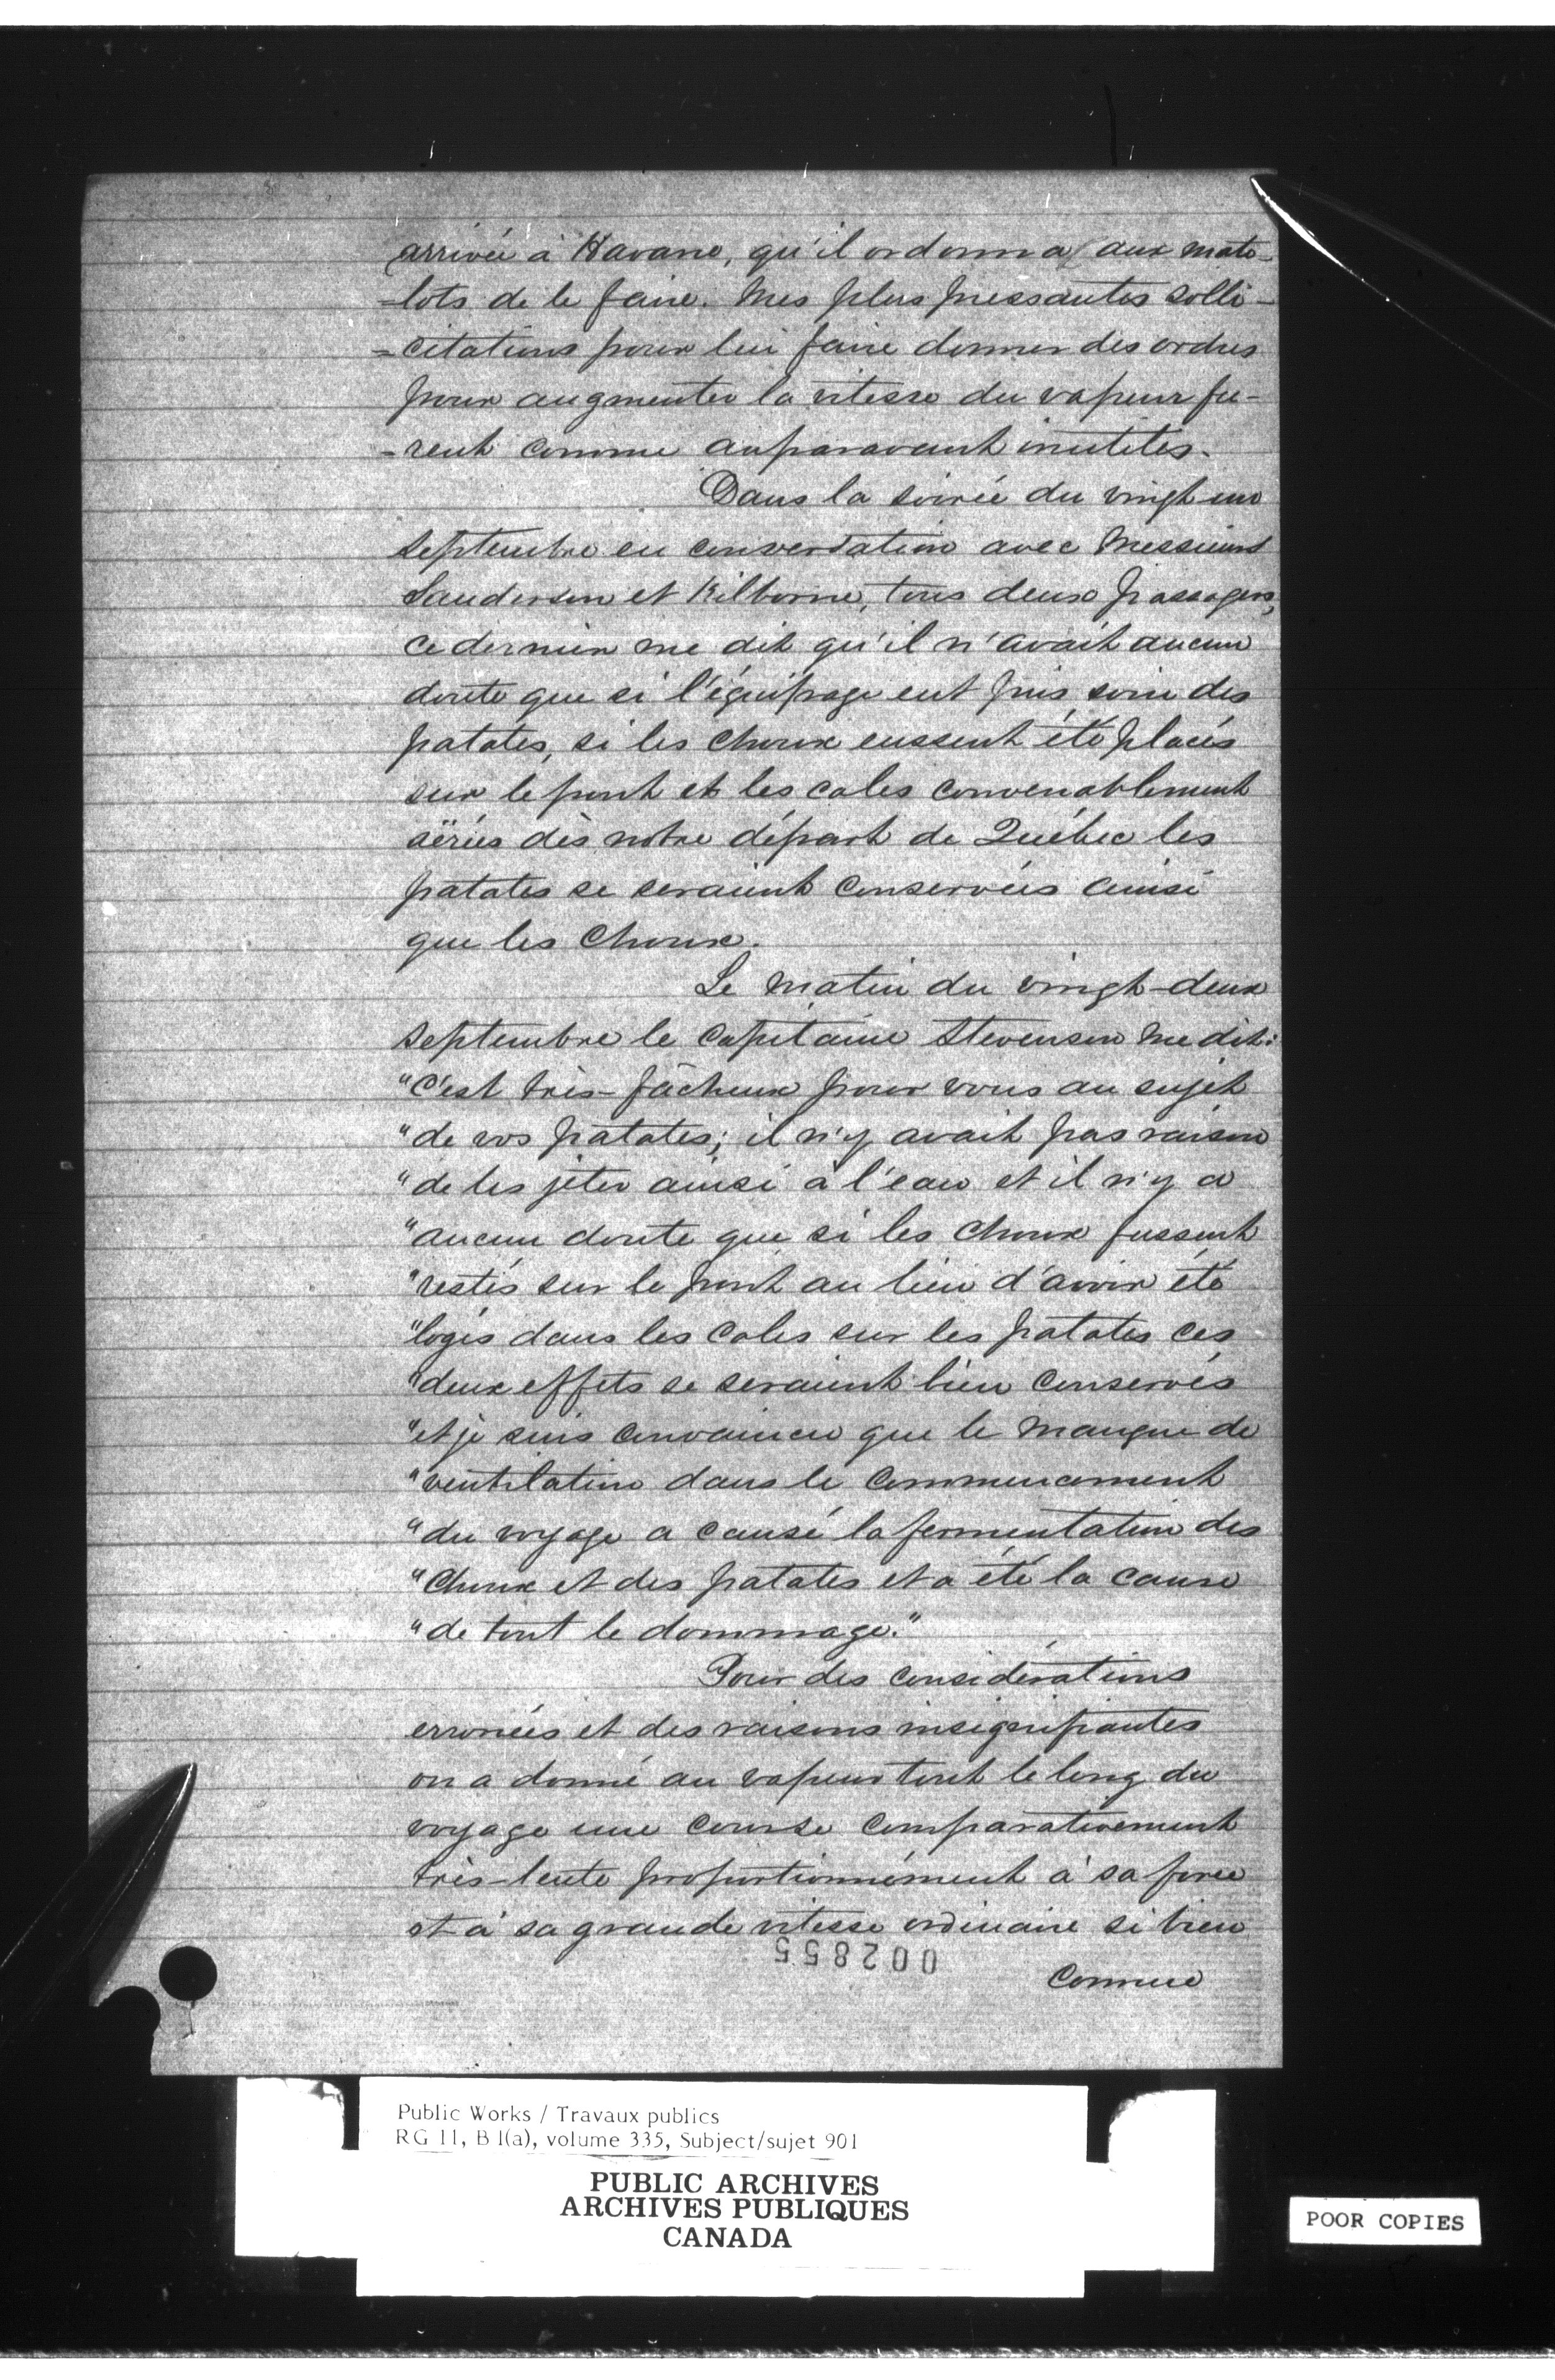 arrivée à Havane, qu'il ordonna aux mate-
=lots de le faire. Mes plus pressantes solli-
=citations pour lui faire donner des ordres
pour augmenter la vitesse du vapeur fu-
-rent comme auparavant inutiles.
Dans la soirée du vingt un
septembre en conversation avec Messieurs
Sanderson et Kilborne, tous deux passagers,
ce dernier me dit qu'il n'avait aucun
doute que si l'équipage eut pris soin des
patates, si les choux eussent été placés
sur le pont et les cales convenablement
aërées dès notre départ de Québec les
patates se seraient conservées ainsi
que les choux.
Le matin du vingt-deux
septembre le capitaine Stevenson me dit:
"C'est très-fâcheux pour vous au sujet
"de vos patates; il n'y avait pas raison
"de les jeter ainsi à l'eau et il n'y a
"aucun doute que si les choux fussent
"restés sur le pont au lieu d'avoir été
"logés dans les cales sur les patates ces
"deux effets se seraient bien conservés
"et je suis convaincu que le manque de
"ventilation dans le commencement
"du voyage a causé la fermentation des
"Choux et des patates et a été la cause
"de tout le dommage."
Pour des considérations
erronées et des raisons insignifiantes
on a donné au vapeur tout le long du
voyage une course comparativement
très-lente proportionnément à sa force
et à sa grande vitesse ordinaire si bien
002855
Connue
Public Works / Travaux publics
RG 11, B 1(a), volume 335, Subject/sujet 901
PUBLIC ARCHIVES
ARCHIVES PUBLIQUES
CANADA
POOR COPIES